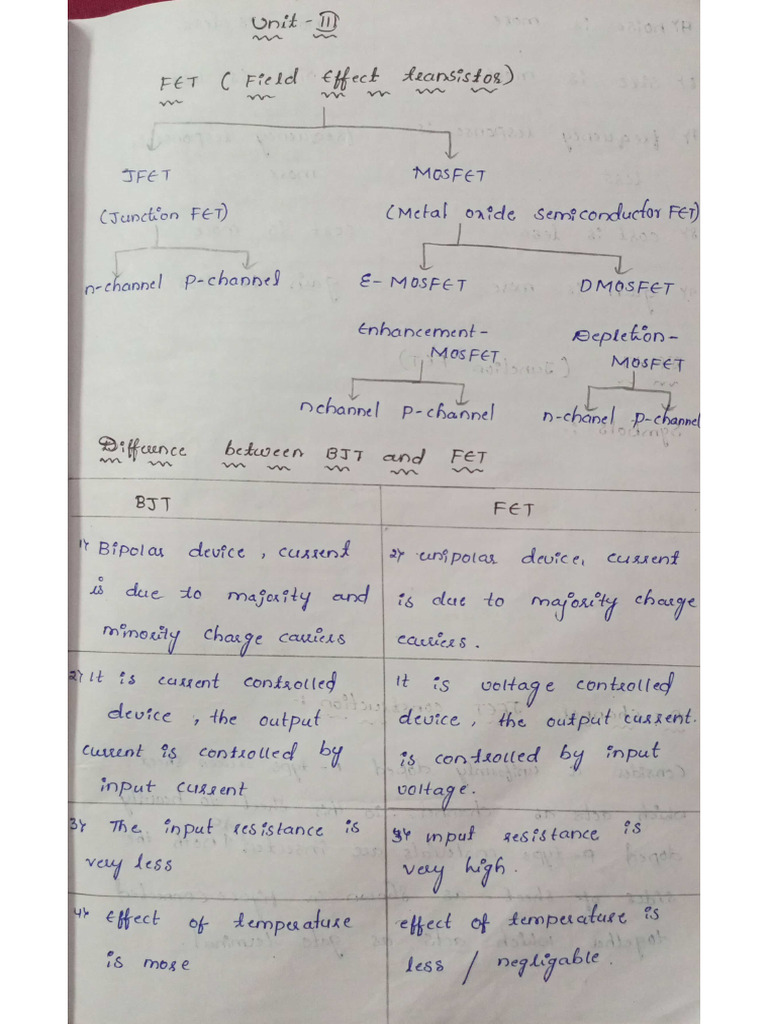 Unit - II
FET ( Field Effect transistor)
JFET MOSFET
(Junction FET) (Metal oxide semiconductor FET)
n-channel P-channel E- MOSFET DMOSFET
Enhancement- Depletion-
MOSFET MOSFET
nchannel P-channel n-chanel p-channel
Diffuence between BJT and FET
BJT FET
1) Bipolar device, current 2) unipolar device, current
is due to majority and is due to majority charge
minority charge carriers carriers.
2) It is current controlled It is voltage controlled
device, the output device, the output current.
current is controlled by is controlled by input
input current voltage.
3) The input resistance is 3) input resistance is
very less very high.
4) Effect of temperature effect of temperature is
is more less / negligable.